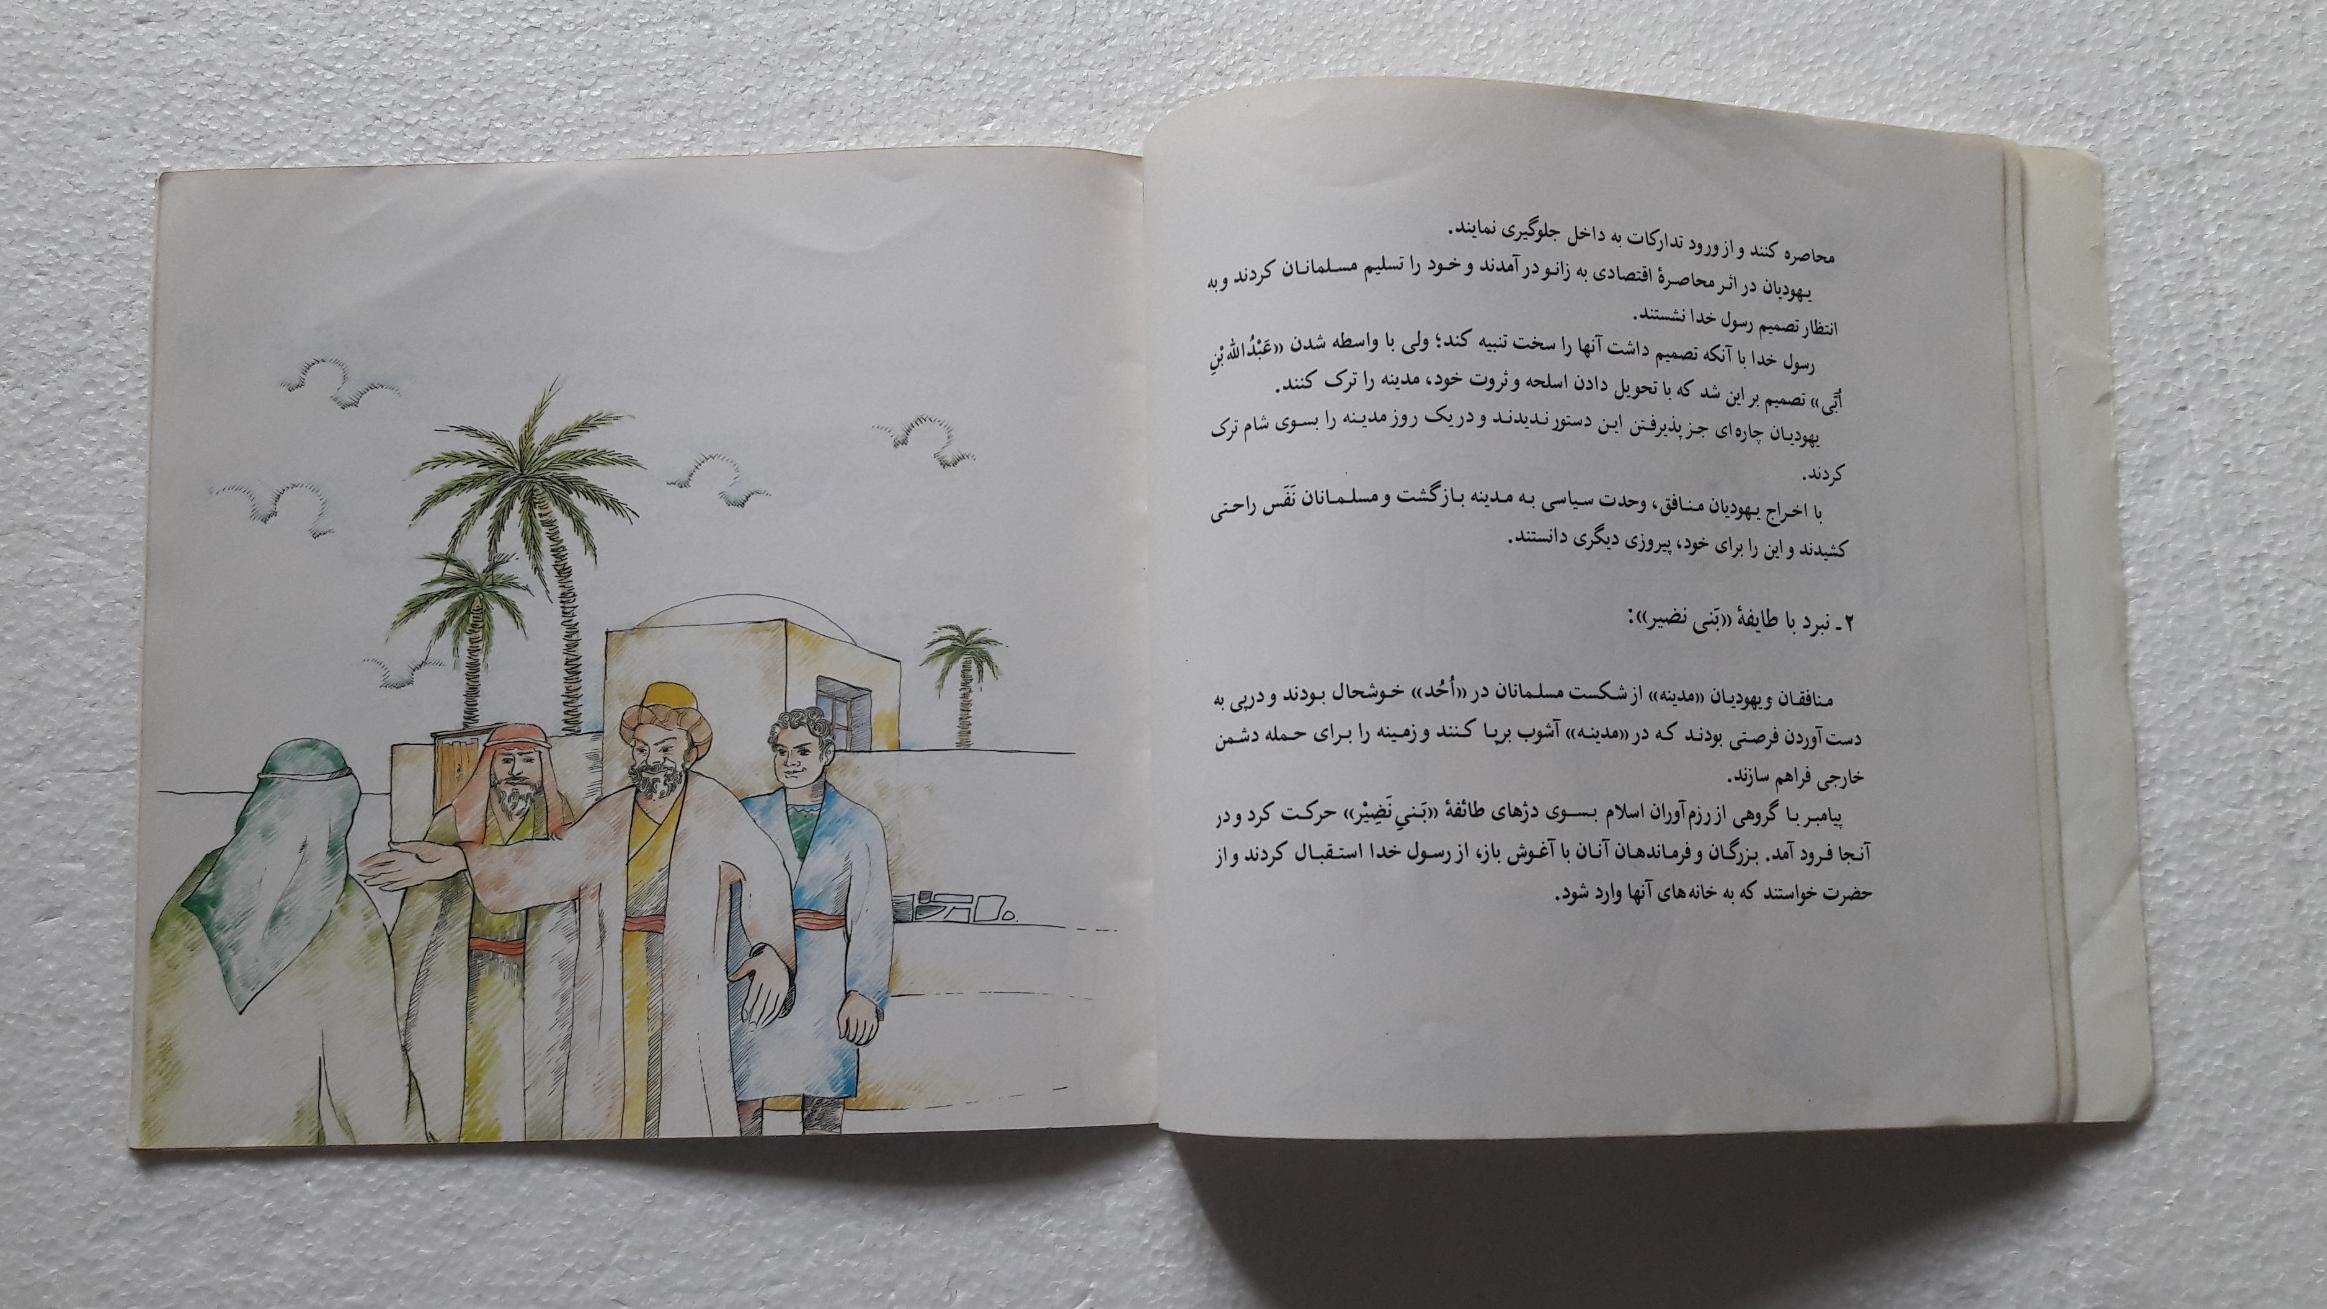 محاصره کنند و از ورود تدارکات به داخل جلوگیری نمایند.
یهودیان در اثر محاصرهٔ اقتصادی به زانو درآمدند و خود را تسلیم مسلمانان کردند و به
انتظار تصمیم رسول خدا نشستند.
رسول خدا با آنکه تصمیم داشت آنها را سخت تنبیه کند؛ ولی با واسطه شدن «عَبْدُالله بْنِ
اُبَّی» تصمیم بر این شد که با تحویل دادن اسلحه و ثروت خود، مدینه را ترک کنند.
یهودیان چاره‌ای جز پذیرفتن این دستور ندیدند و در یک روز مدینه را بسوی شام ترک
کردند.
با اخراج یهودیان منافق، وحدت سیاسی به مدینه بازگشت و مسلمانان نَفَس راحتی
کشیدند و این را برای خود، پیروزی دیگری دانستند.
۲ـ نبرد با طایفهٔ «بَنی نضیر»:
منافقان و یهودیان «مدینه» از شکست مسلمانان در «اُحُد» خوشحال بودند و درپی به
دست آوردن فرصتی بودند که در «مدینه» آشوب برپا کنند و زمینه را برای حمله دشمن
خارجی فراهم سازند.
پیامبر با گروهی از رزم‌آوران اسلام بسوی دژهای طائفهٔ «بَنیِ نَضِیْر» حرکت کرد و در
آنجا فرود آمد. بزرگان و فرماندهان آنان با آغوش باز، از رسول خدا استقبال کردند و از
حضرت خواستند که به خانه‌های آنها وارد شود.